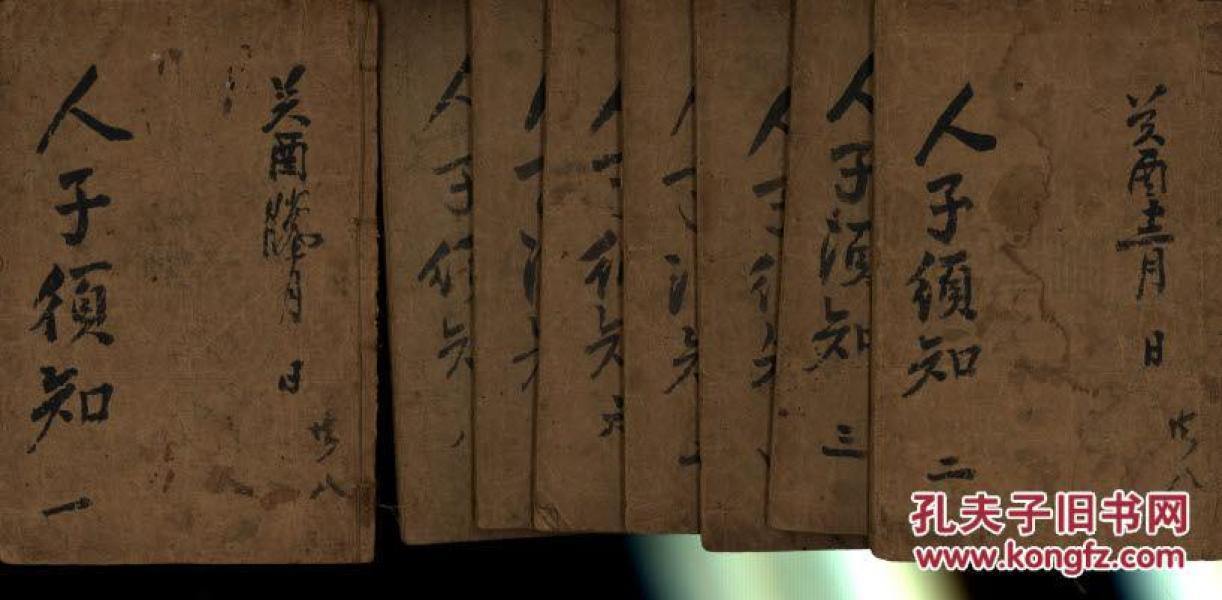 癸酉臘月 日
共八
人子須知 一
人子須知
人子須知
人子須知
人子須知
人子須知
人子湏知 三
癸酉十二月 日
共八
人子須知 二
孔夫子旧书网
www.kongfz.com